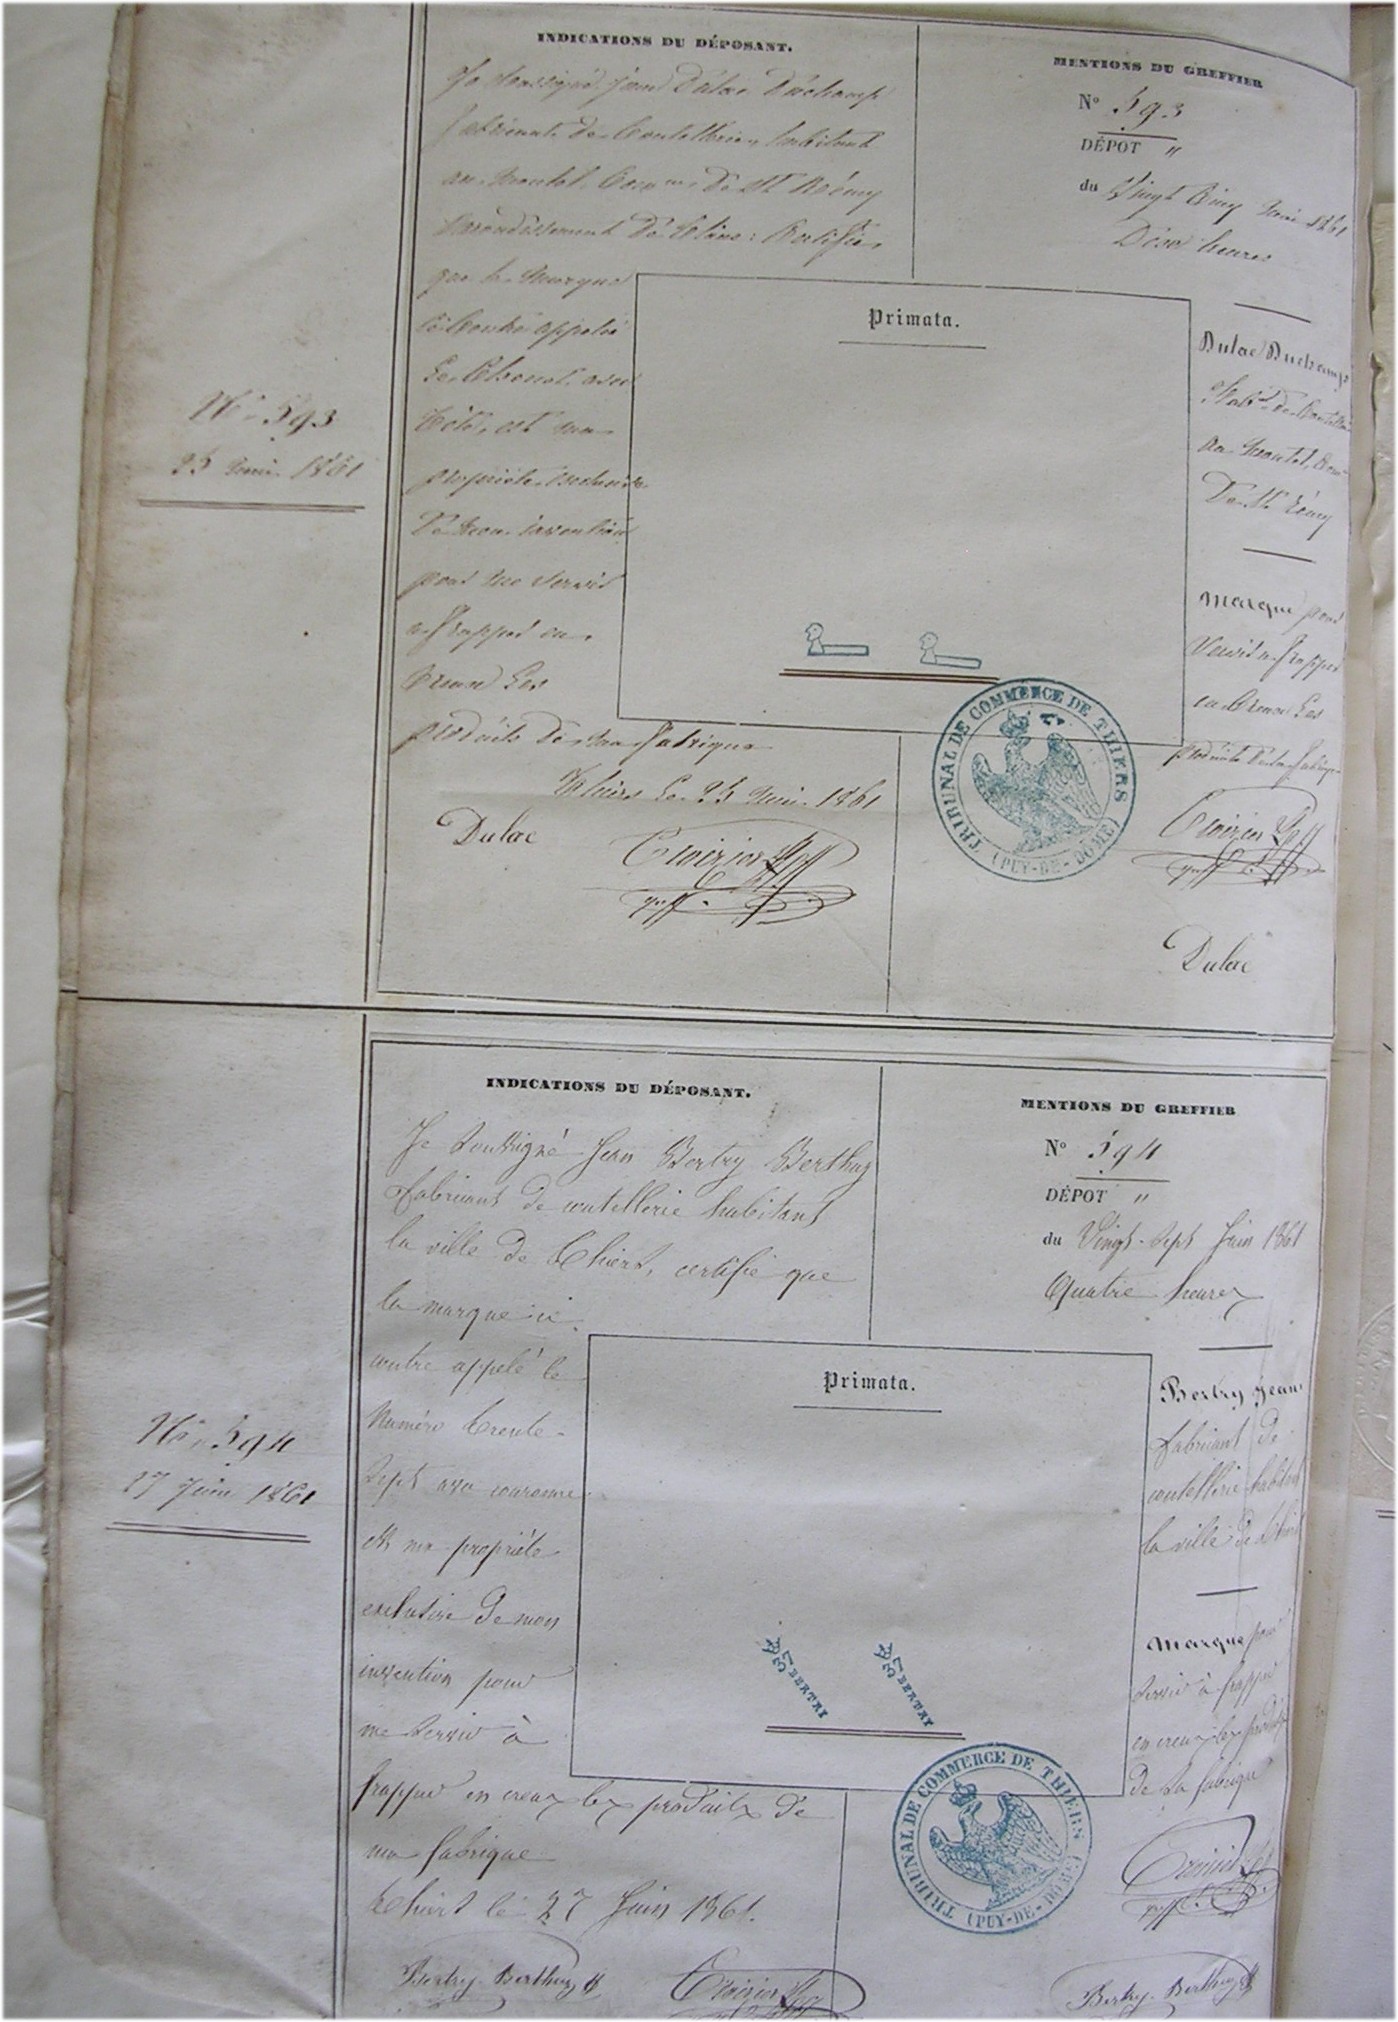 INDICATIONS DU DÉPOSANT.
Je soussigné Jean Dulac Duchamp
fabricant de Coutellerie, habitant
au moutel, Comne de St Rémy
Certifie,
que la marque
ci contre appelée
avec
tête, est ma
propriété exclusive
de mon invention
pour me servir
a frapper en
creux les
produits de ma fabrique
Thiers le 25 1861
Dulac
MENTIONS DU GREFFIER
N° 593
DÉPOT "
du Vingt Cinq 1861
heures
Primata.
Dulac Duchamp
fabt de Coutellerie
au moutel, Comne
De St Rémy
Marque pour
servir a frapper
en creux les
produits de sa fabrique
TRIBUNAL DE COMMERCE DE THIERS
(PUY-DE-DÔME)
Dulac
N° 593
25 1861
INDICATIONS DU DÉPOSANT.
Je soussigné Jean Bertry Berthuy
fabricant de coutellerie habitant
la ville de Thiers, certifie que
la marque ci
contre appelé le
Numéro trente
sept avec couronne
est ma propriété
exclusive de mon
invention pour
me servir à
frapper en creux les produits de
ma fabrique
Thiers le 27 Juin 1861.
Bertry-Berthuy
MENTIONS DU GREFFIER
N° 594
DÉPOT "
du Vingt-Sept Juin 1861
Quatre heures
Primata.
Bertry Jean
fabricant de
coutellerie habitant
la ville de Thiers
Marque pour
servir à frapper
en creux les produits
de sa fabrique
37 BERTRY
37 BERTRY
TRIBUNAL DE COMMERCE DE THIERS
(PUY-DE-DÔME)
Bertry-Berthuy
N° 594
27 Juin 1861